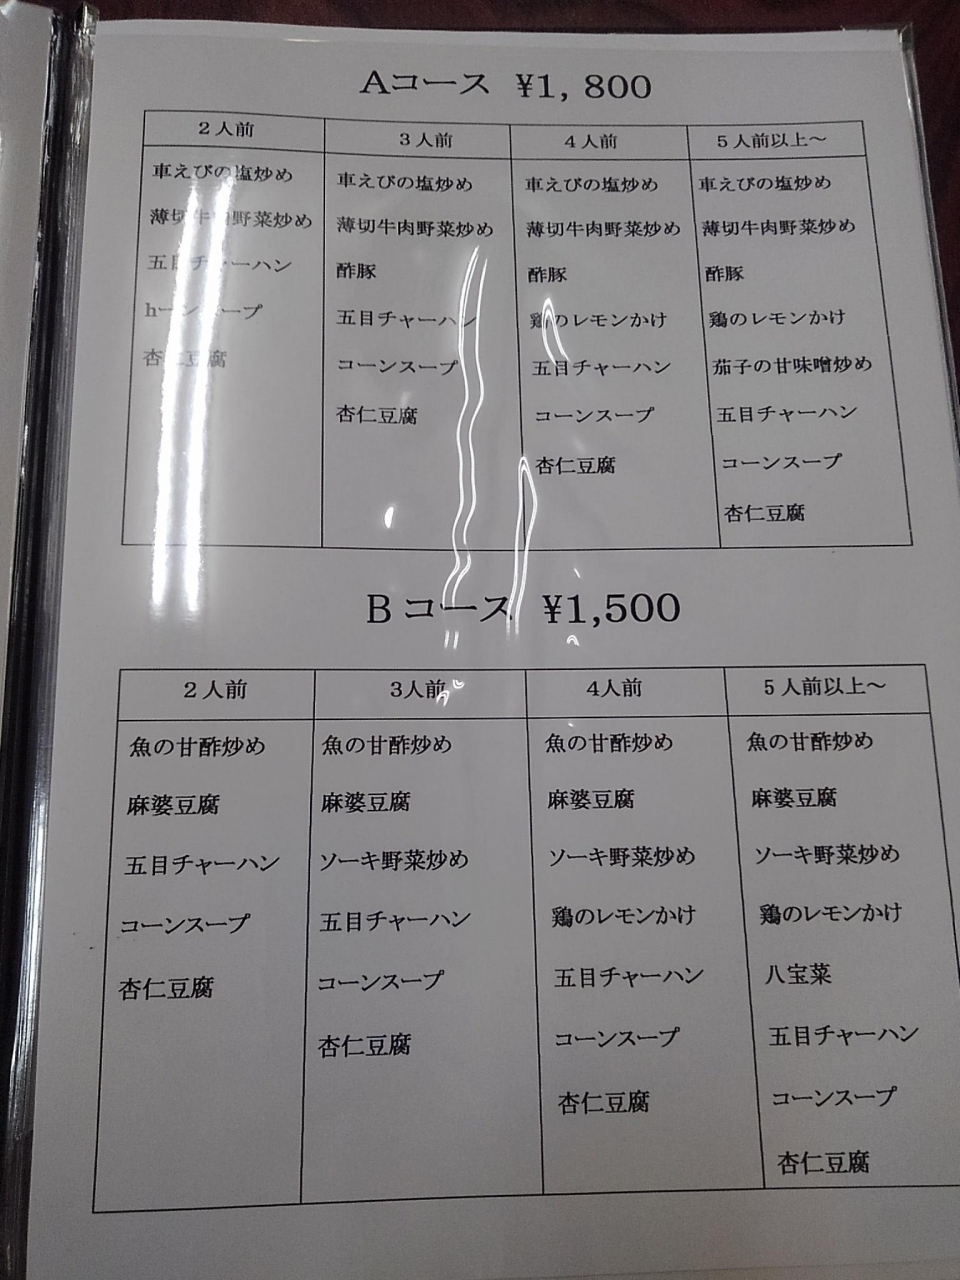 Aコース ¥1,800
2人前
車えびの塩炒め
薄切牛肉野菜炒め
五目チャーハン
hーンスープ
杏仁豆腐
3人前
車えびの塩炒め
薄切牛肉野菜炒め
酢豚
五目チャーハン
コーンスープ
杏仁豆腐
4人前
車えびの塩炒め
薄切牛肉野菜炒め
酢豚
鶏のレモンかけ
五目チャーハン
コーンスープ
杏仁豆腐
5人前以上～
車えびの塩炒め
薄切牛肉野菜炒め
酢豚
鶏のレモンかけ
茄子の甘味噌炒め
五目チャーハン
コーンスープ
杏仁豆腐
Bコース ¥1,500
2人前
魚の甘酢炒め
麻婆豆腐
五目チャーハン
コーンスープ
杏仁豆腐
3人前
魚の甘酢炒め
麻婆豆腐
ソーキ野菜炒め
五目チャーハン
コーンスープ
杏仁豆腐
4人前
魚の甘酢炒め
麻婆豆腐
ソーキ野菜炒め
鶏のレモンかけ
五目チャーハン
コーンスープ
杏仁豆腐
5人前以上～
魚の甘酢炒め
麻婆豆腐
ソーキ野菜炒め
鶏のレモンかけ
八宝菜
五目チャーハン
コーンスープ
杏仁豆腐